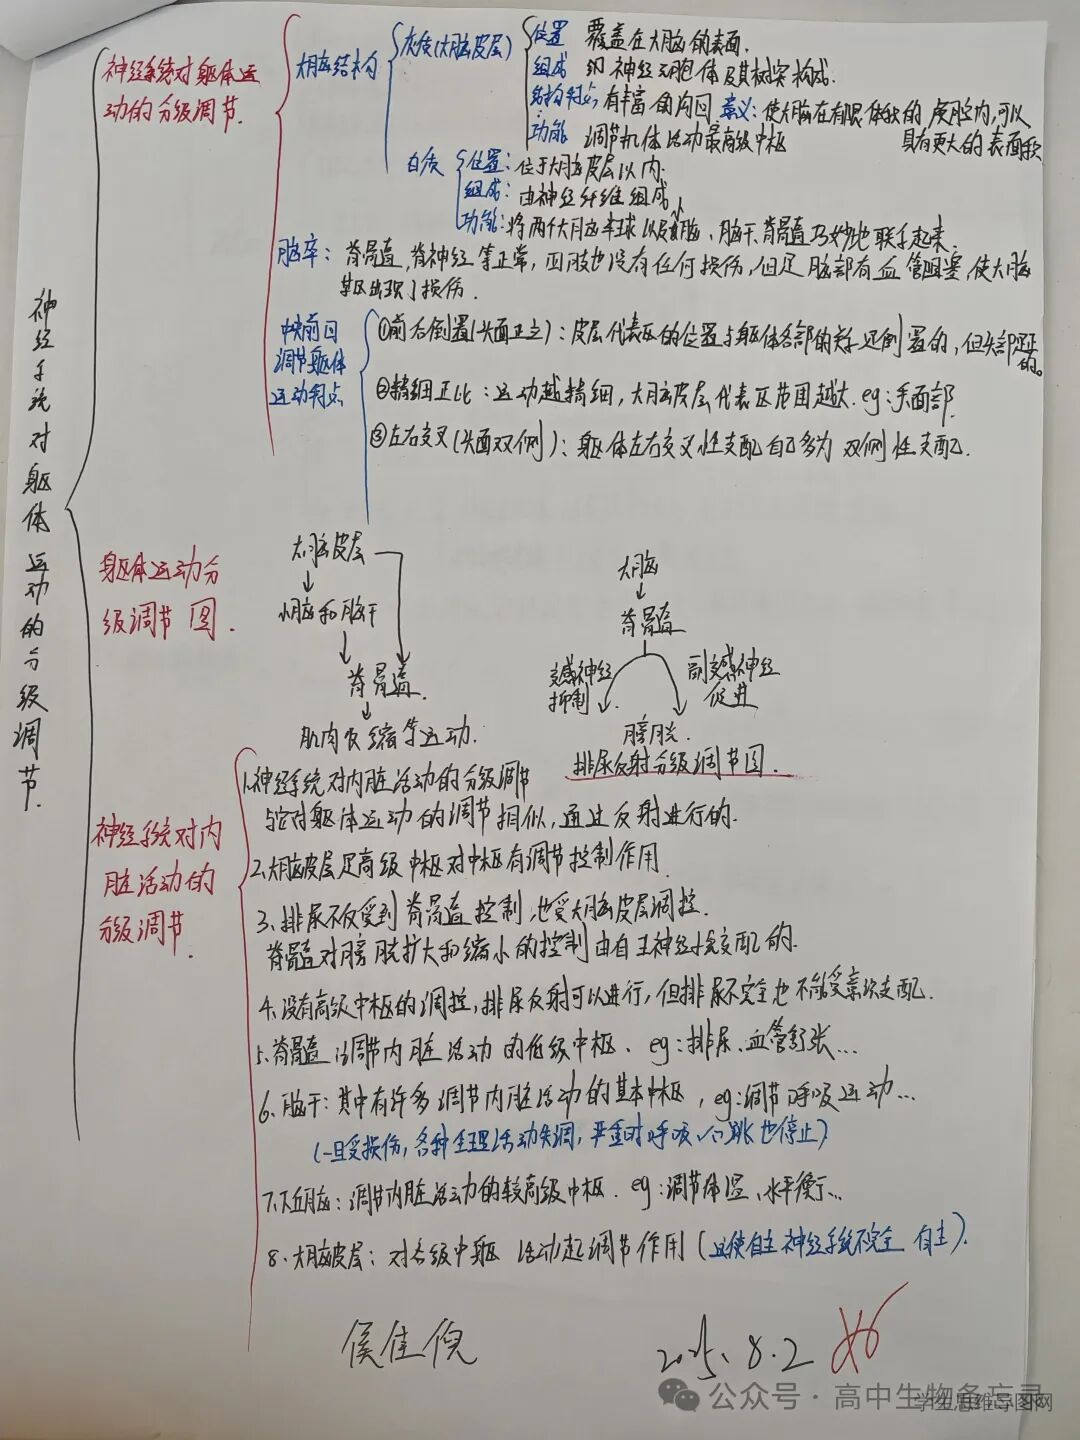 神经系统对躯体运动的分级调节.
神经系统对躯体运
动的分级调节.
大脑结构
灰质(大脑皮层)
位置 覆盖在大脑的表面.
组成 由神经元胞体及其树突构成.
结构特点,有丰富的沟回 意义:使大脑在有限体积的颅腔内,可以
具有更大的表面积
功能 调节机体活动最高级中枢
白质
位置:位于大脑皮层以内.
组成:由神经纤维组成
功能:将两个大脑半球以及小脑、脑干、脊髓巧妙地联系起来.
脑卒:脊髓,脊神经等正常,四肢也没有任何损伤,但是脑部有血管阻塞,使大脑
某区出现了损伤.
中央前回
调节躯体
运动特点
①前后倒置(头面正立):皮层代表区的位置与躯体各部的关系是倒置的,但头部是正的。
②精细正比:运动越精细,大脑皮层代表区范围越大.eg:手面部.
③左右交叉(头面双侧):躯体左右交叉性支配 自己多为双侧性支配.
躯体运动分
级调节图.
大脑皮层
小脑和脑干
脊髓.
肌肉收缩等运动.
大脑
脊髓
交感神经
抑制
副交感神经
促进
膀胱
排尿反射分级调节图.
神经系统对内
脏活动的
分级调节.
1.神经系统对内脏活动的分级调节
与它对躯体运动的调节相似,通过反射进行的.
2.大脑皮层是高级中枢对中枢有调节控制作用.
3.排尿不仅受到脊髓控制,也受大脑皮层调控.
脊髓对膀胱扩大和缩小的控制由自主神经系统支配的.
4.没有高级中枢的调控,排尿反射可以进行,但排尿不完全也不能受意识支配.
5.脊髓:调节内脏活动的低级中枢.eg:排尿、血管舒张...
6.脑干:其中有许多调节内脏活动的基本中枢,eg:调节呼吸运动...
(一旦受损伤,各种生理活动失调,严重时呼吸、心跳也停止)
7.下丘脑:调节内脏活动的较高级中枢.eg:调节体温、水平衡...
8.大脑皮层:对各级中躯活动起调节作用(这使自主神经系统不完全自主).
侯佳倪
2025.8.2
公众号·高中生物备忘录
学生思维导图网